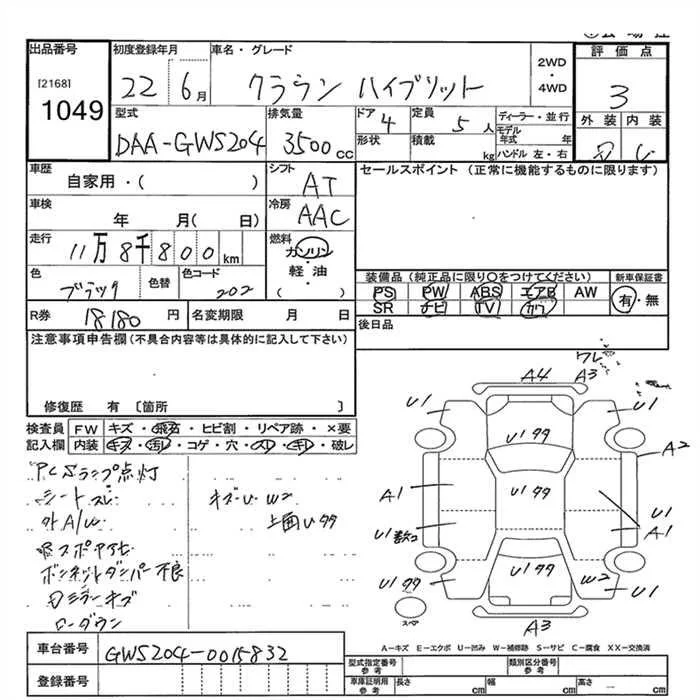 出品番号
[2168]
1049
初度登録年月
22 6月
車名・グレード
クラウン ハイブリット
2WD
・
4WD
評価点
3
外装 内装
型式
DAA-GWS204
排気量
3500cc
ドア
4
形状
定員
5人
積載
kg
ディーラー・並行
モデル年式 年
ハンドル 左・右
車歴
自家用・( )
シフト
AT
冷房
AAC
セールスポイント (正常に機能するものに限ります)
車検
年 月( 日)
走行
11万8千800km
燃料
ガソリン
・
軽油
・
( )
色
ブラック
色替
色コード
202
装備品 (純正品に限り○をつけてください)
PS PW ABS エアB AW
SR ナビ TV カワ
新車保証書
有・無
R券
18180円
名変期限 月 日
後日品
注意事項申告欄(不具合内容等は具体的に記入して下さい)
修復歴 有 〔箇所 〕
検査員
記入欄
FW キズ・飛石・ヒビ割・リペア跡・×要
内装 キズ・汚レ・コゲ・穴・スレ・キレ・破レ
PCSランプ点灯
シートスレ
キズU W2
外A/U
上面Uタタ
ボンネットダンパー不良
ドミラーキズ
ローダウン
ワレ
A4 A3
U1 U1
U1タタ
A2
A1 U1タタ
U1
U1数コ A1
U1タタ U1タタ W2 U1
スペア
A3
A-キズ E-エクボ U-凹み W-補修跡 S-サビ C-腐食 XX-交換済
車台番号
GWS204-0015832
登録番号
型式指定番号
参考
類別区分番号
参考
車庫証明用
参考
長さ cm 幅 cm 高さ cm